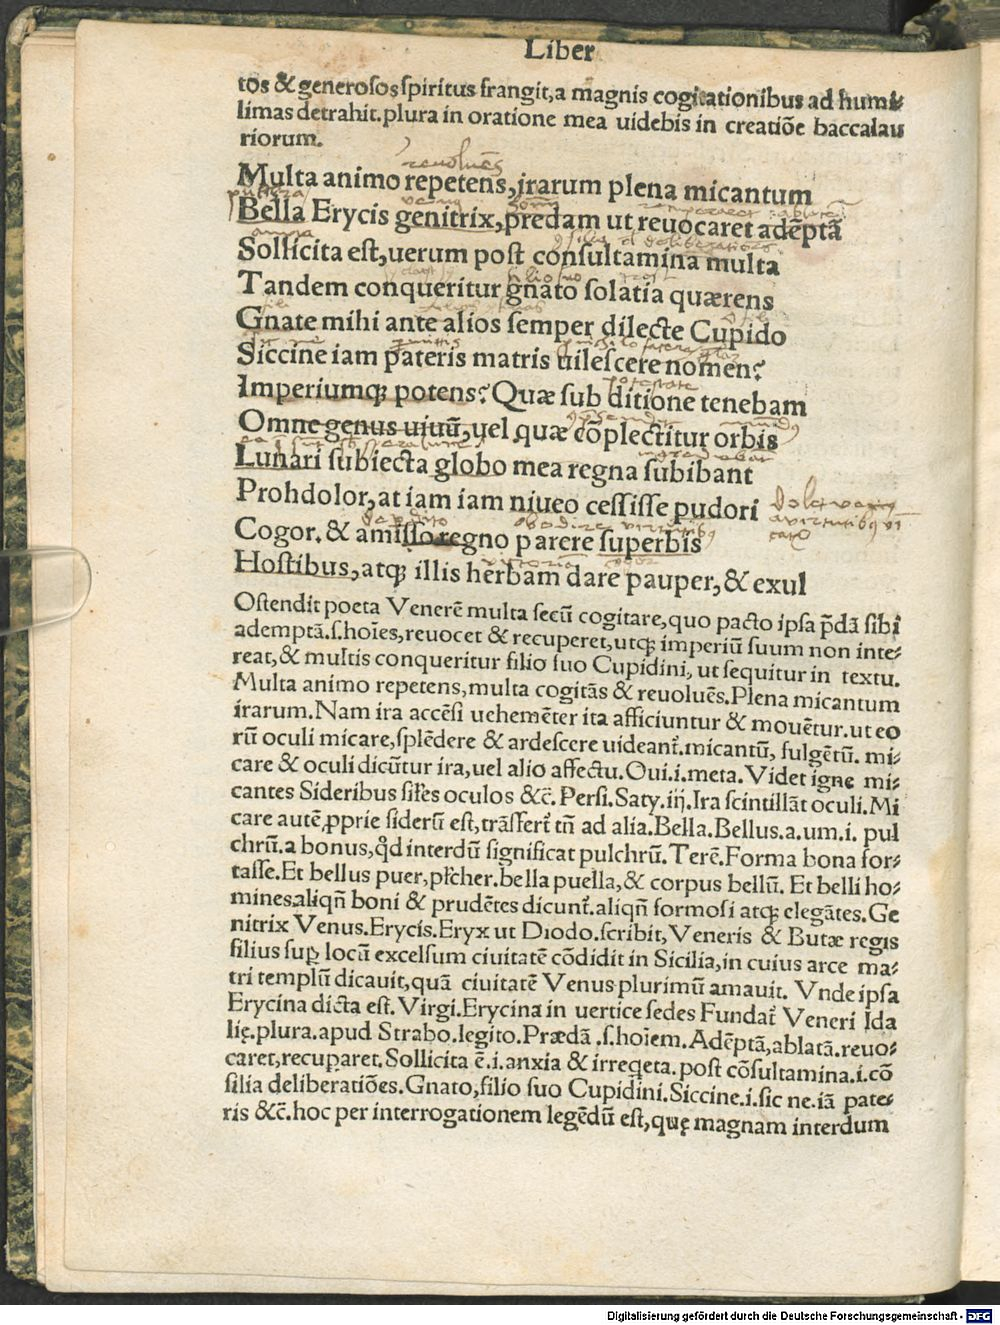 Liber
tos & generosos spiritus frangit, a magnis cogitationibus ad humi⸗
limas detrahit. plura in oratione mea uidebis in creatiõe baccalau
riorum.
reuoluẽs
Multa animo repetens, irarum plena micantum
Bella Erycis genitrix, prędam ut reuocaret adẽptã
Sollicita est, uerum post consultamina multa
Tandem conqueritur gnato solatia quærens
Gnate mihi ante alios semper dilecte Cupido
Siccine iam pateris matris uilescere nomen?
Imperiumqꝫ potens? Quæ sub ditione tenebam
Omne genus uiuũ, uel quæ cõplectitur orbis
Lunari subiecta globo mea regna subibant
Prohdolor, at iam iam niueo cessisse pudori
Cogor. & amisso regno parere superbis
Hostibus, atqꝫ illis herbam dare pauper, & exul
Ostendit poeta Venerẽ multa secũ cogitare, quo pacto ipsa p̃dã sibi
ademptã. s. hoĩes, reuocet & recuperet, utqꝫ imperiũ suum non inte⸗
reat, & multis conqueritur filio suo Cupidini, ut sequitur in textu.
Multa animo repetens, multa cogitãs & reuoluẽs. Plena micantum
irarum. Nam ira accẽsi uehemẽter ita afficiuntur & mouẽtur. ut eo
rũ oculi micare, splẽdere & ardescere uideant᷑. micantũ, fulgẽtũ. mi⸗
care & oculi dicũtur ira, uel alio affectu. Oui. i. meta. Videt igne mi⸗
cantes Sideribus sil̃es oculos &c̃. Persi. Saty. iij. Ira scintillãt oculi. Mi
care autẽ, ꝓprie siderũ est, trãsfert᷑ tñ ad alia. Bella. Bellus. a. um. i. pul
chrũ. a bonus, qđ interdũ significat pulchrũ. Terẽ. Forma bona for⸗
tasse. Et bellus puer, pl̃cher. bella puella, & corpus bellũ. Et belli ho⸗
mines, aliqñ boni & prudẽtes dicunt᷑. aliqñ formosi atqꝫ elegãtes. Ge
nitrix Venus. Erycis. Eryx ut Diodo. scribit, Veneris & Butæ regis
filius suꝑ locũ excelsum ciuitatẽ cõdidit in Sicilia, in cuius arce ma⸗
tri templũ dicauit, quã ciuitatẽ Venus plurimũ amauit. Vnde ipsa
Erycina dicta est. Virgi. Erycina in uertice sedes Fundat᷑ Veneri Ida
lię. plura. apud Strabo. legito. Prædã. s. hoĩem. Adẽptã, ablatã. reuo⸗
caret, recuꝑaret. Sollicita ẽ. i. anxia & irreq̃eta. post cõsultamina. i. cõ
silia deliberatiões. Gnato, filio suo Cupidini. Siccine. i. sic ne. iã pate⸗
ris &c̃. hoc per interrogationem legẽdũ est, quę magnam interdum
Digitalisierung gefördert durch die Deutsche Forschungsgemeinschaft - DFG